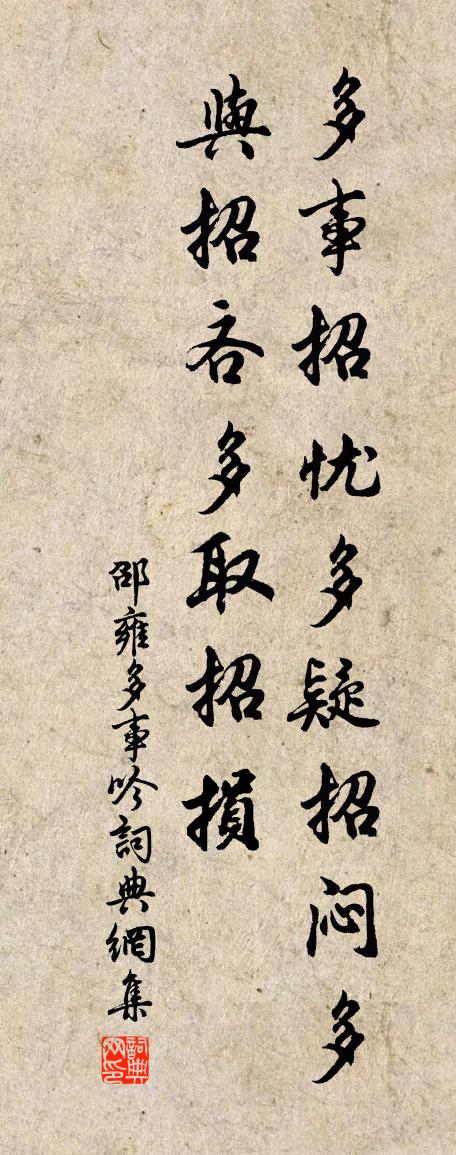 多事招忧多疑招闷多
與招吝多取招損
邵雍多事吟詞典網集
詞典网印